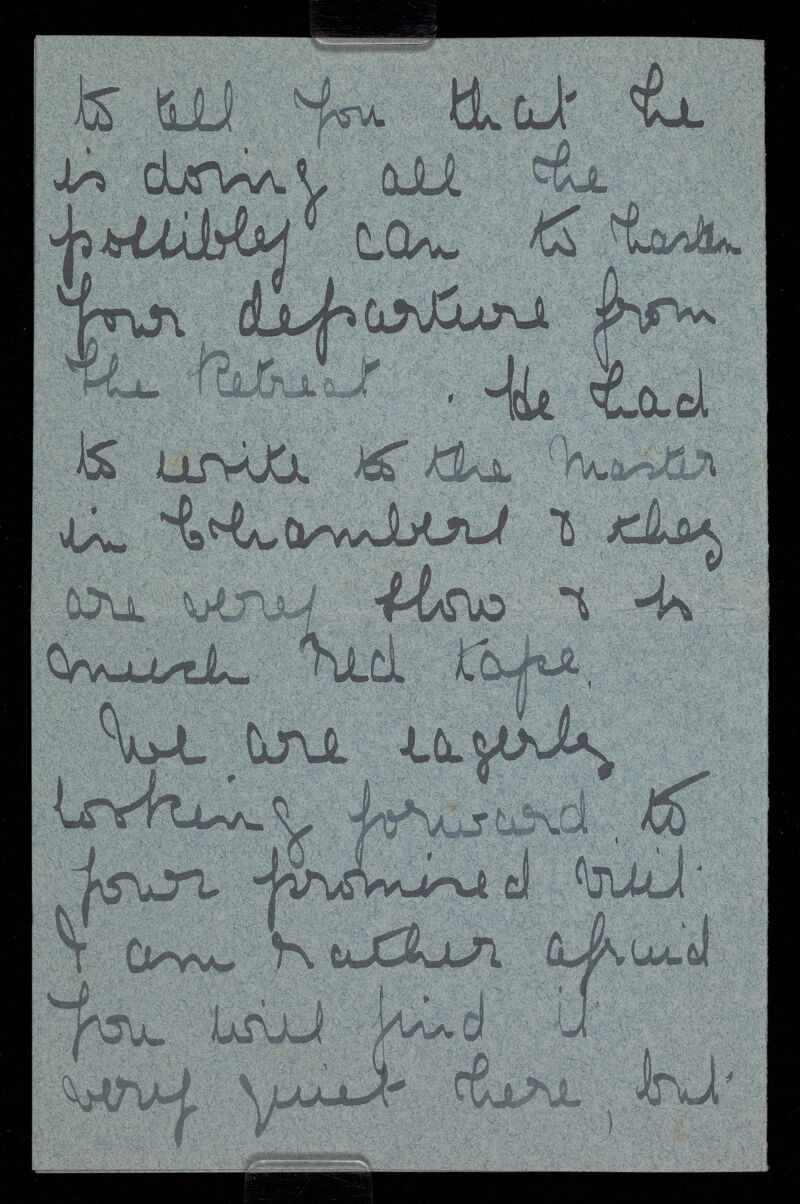 to tell you that he
is doing all he
possibly can to hasten
your departure from
the Retreat. He had
to write to the Master
in Chambers & they
are very slow & so
much red tape.
We are eagerly
looking forward to
your promised visit.
I am rather afraid
you will find it
very quiet here, but